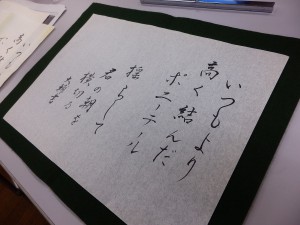 いつもより
高く結んだ
ポニーテール
揺らして
君の朝
横切るを